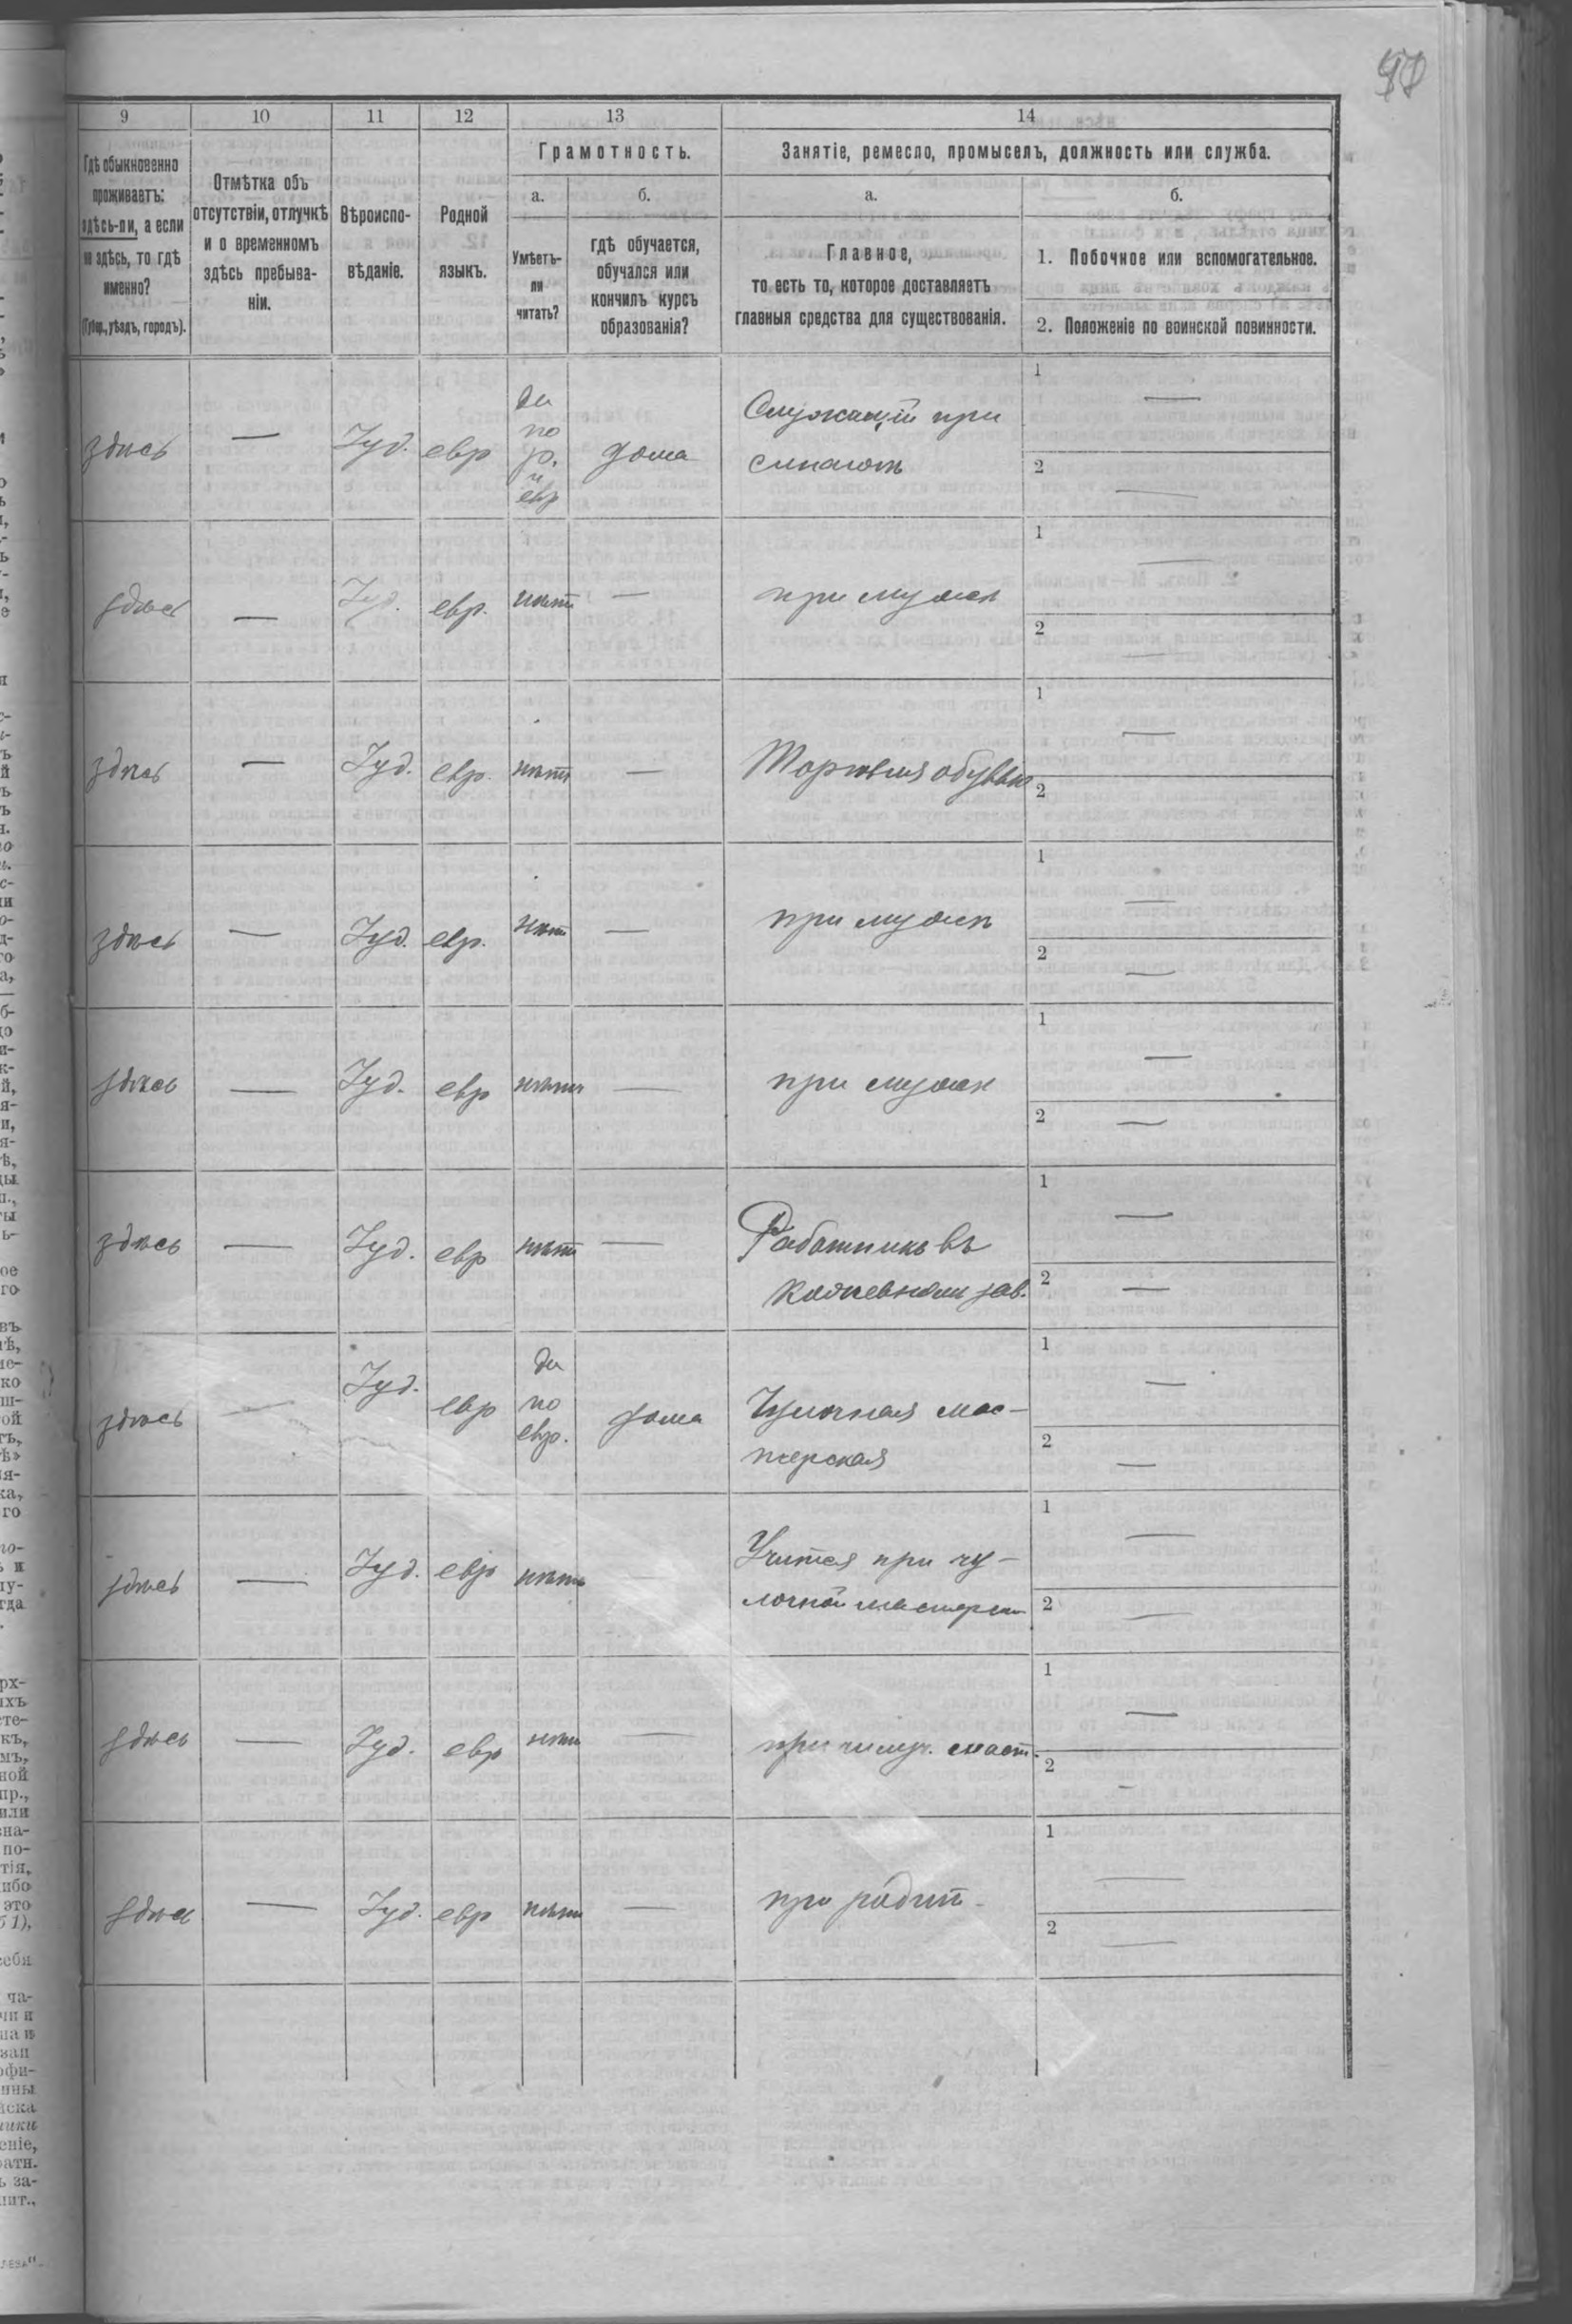 9 10 11 12 13 14
Гдѣ обыкновенно
проживаетъ:
здѣсь-ли, а если
не здѣсь, то гдѣ
именно?
(Губер., уѣздъ, городъ).
Отмѣтка объ
отсутствіи, отлучкѣ
и о временномъ
здѣсь пребыва-
ніи.
Вѣроиспо-
вѣданіе.
Родной
языкъ.
Грамотность.
а.
Умѣетъ-
ли
читать?
б.
гдѣ обучается,
обучался или
кончилъ курсъ
образованія?
Занятіе, ремесло, промыселъ, должность или служба.
а.
Главное,
то есть то, которое доставляетъ
главныя средства для существованія.
б.
1. Побочное или вспомогательное.
2. Положеніе по воинской повинности.
здѣсь — Іуд. евр да по р. и евр дома Служащій при
1 —
2 —
здѣсь — Іуд. евр. нѣтъ — при мужѣ
1 —
2 —
здѣсь — Іуд. евр. нѣтъ — Торговля обувью
1 —
2
здѣсь — Іуд. евр. нѣтъ — при мужѣ
1 —
2 —
здѣсь — Іуд. евр нѣтъ — при мужѣ
1 —
2 —
здѣсь — Іуд. евр нѣтъ — Работникъ въ
кожевном зав.
1 —
2 —
здѣсь — Іуд. евр да по евр. дома Чулочная мас-
терская
1 —
2 —
здѣсь — Іуд. евр нѣтъ — Учится при чу-
лочной мастерск
1 —
2 —
здѣсь — Іуд. евр нѣтъ — при маст.
1 —
2 —
здѣсь — Іуд. евр нѣтъ — при родит.
1 —
2 —